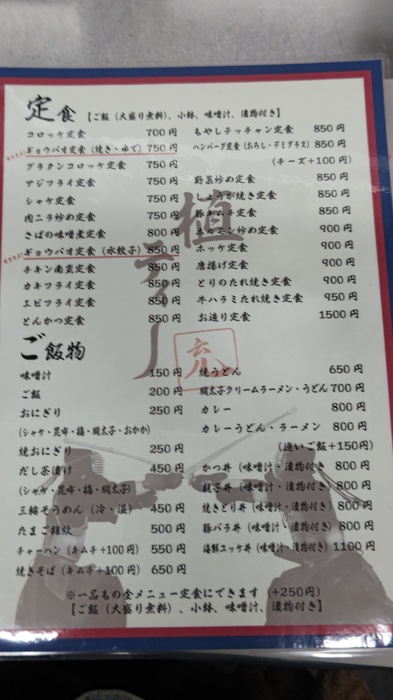 定食 【ご飯（大盛り無料）、小鉢、味噌汁、漬物付き】
コロッケ定食 700円
ギョウバオ定食（焼き・ゆで）750円
グラタンコロッケ定食 750円
アジフライ定食 750円
シャケ定食 750円
肉ニラ炒め定食 750円
さばの味噌煮定食 800円
ギョウバオ定食（水餃子）850円
チキン南蛮定食 850円
カキフライ定食 850円
エビフライ定食 850円
とんかつ定食 850円
もやしテッチャン定食 850円
ハンバーグ定食（おろし・デミグラス）850円
（チーズ+100円）
野菜炒め定食 850円
しょうが焼き定食 850円
豚キムチ定食 850円
ホルモン炒め定食 900円
ホッケ定食 900円
唐揚げ定食 900円
とりのたれ焼き定食 900円
牛ハラミたれ焼き定食 950円
お造り定食 1500円
ご飯物
味噌汁 150円
ご飯 200円
おにぎり 250円
（シャケ・昆布・梅・明太子・おかか）
焼おにぎり 250円
だし茶漬け 450円
（シャケ・昆布・梅・明太子）
三輪そうめん（冷・温） 450円
たまご雑炊 500円
チャーハン（キムチ+100円） 550円
焼きそば（キムチ+100円） 650円
焼うどん 650円
明太子クリームラーメン・うどん 700円
カレー 800円
カレーうどん・ラーメン 800円
（追いご飯+150円）
かつ丼（味噌汁・漬物付き） 800円
親子丼（味噌汁・漬物付き） 800円
焼きとり丼（味噌汁・漬物付き） 800円
豚バラ丼（味噌汁・漬物付き） 800円
海鮮ユッケ丼（味噌汁・漬物付き） 1100円
※一品もの全メニュー定食にできます（+250円）
【ご飯（大盛り無料）、小鉢、味噌汁、漬物付き】